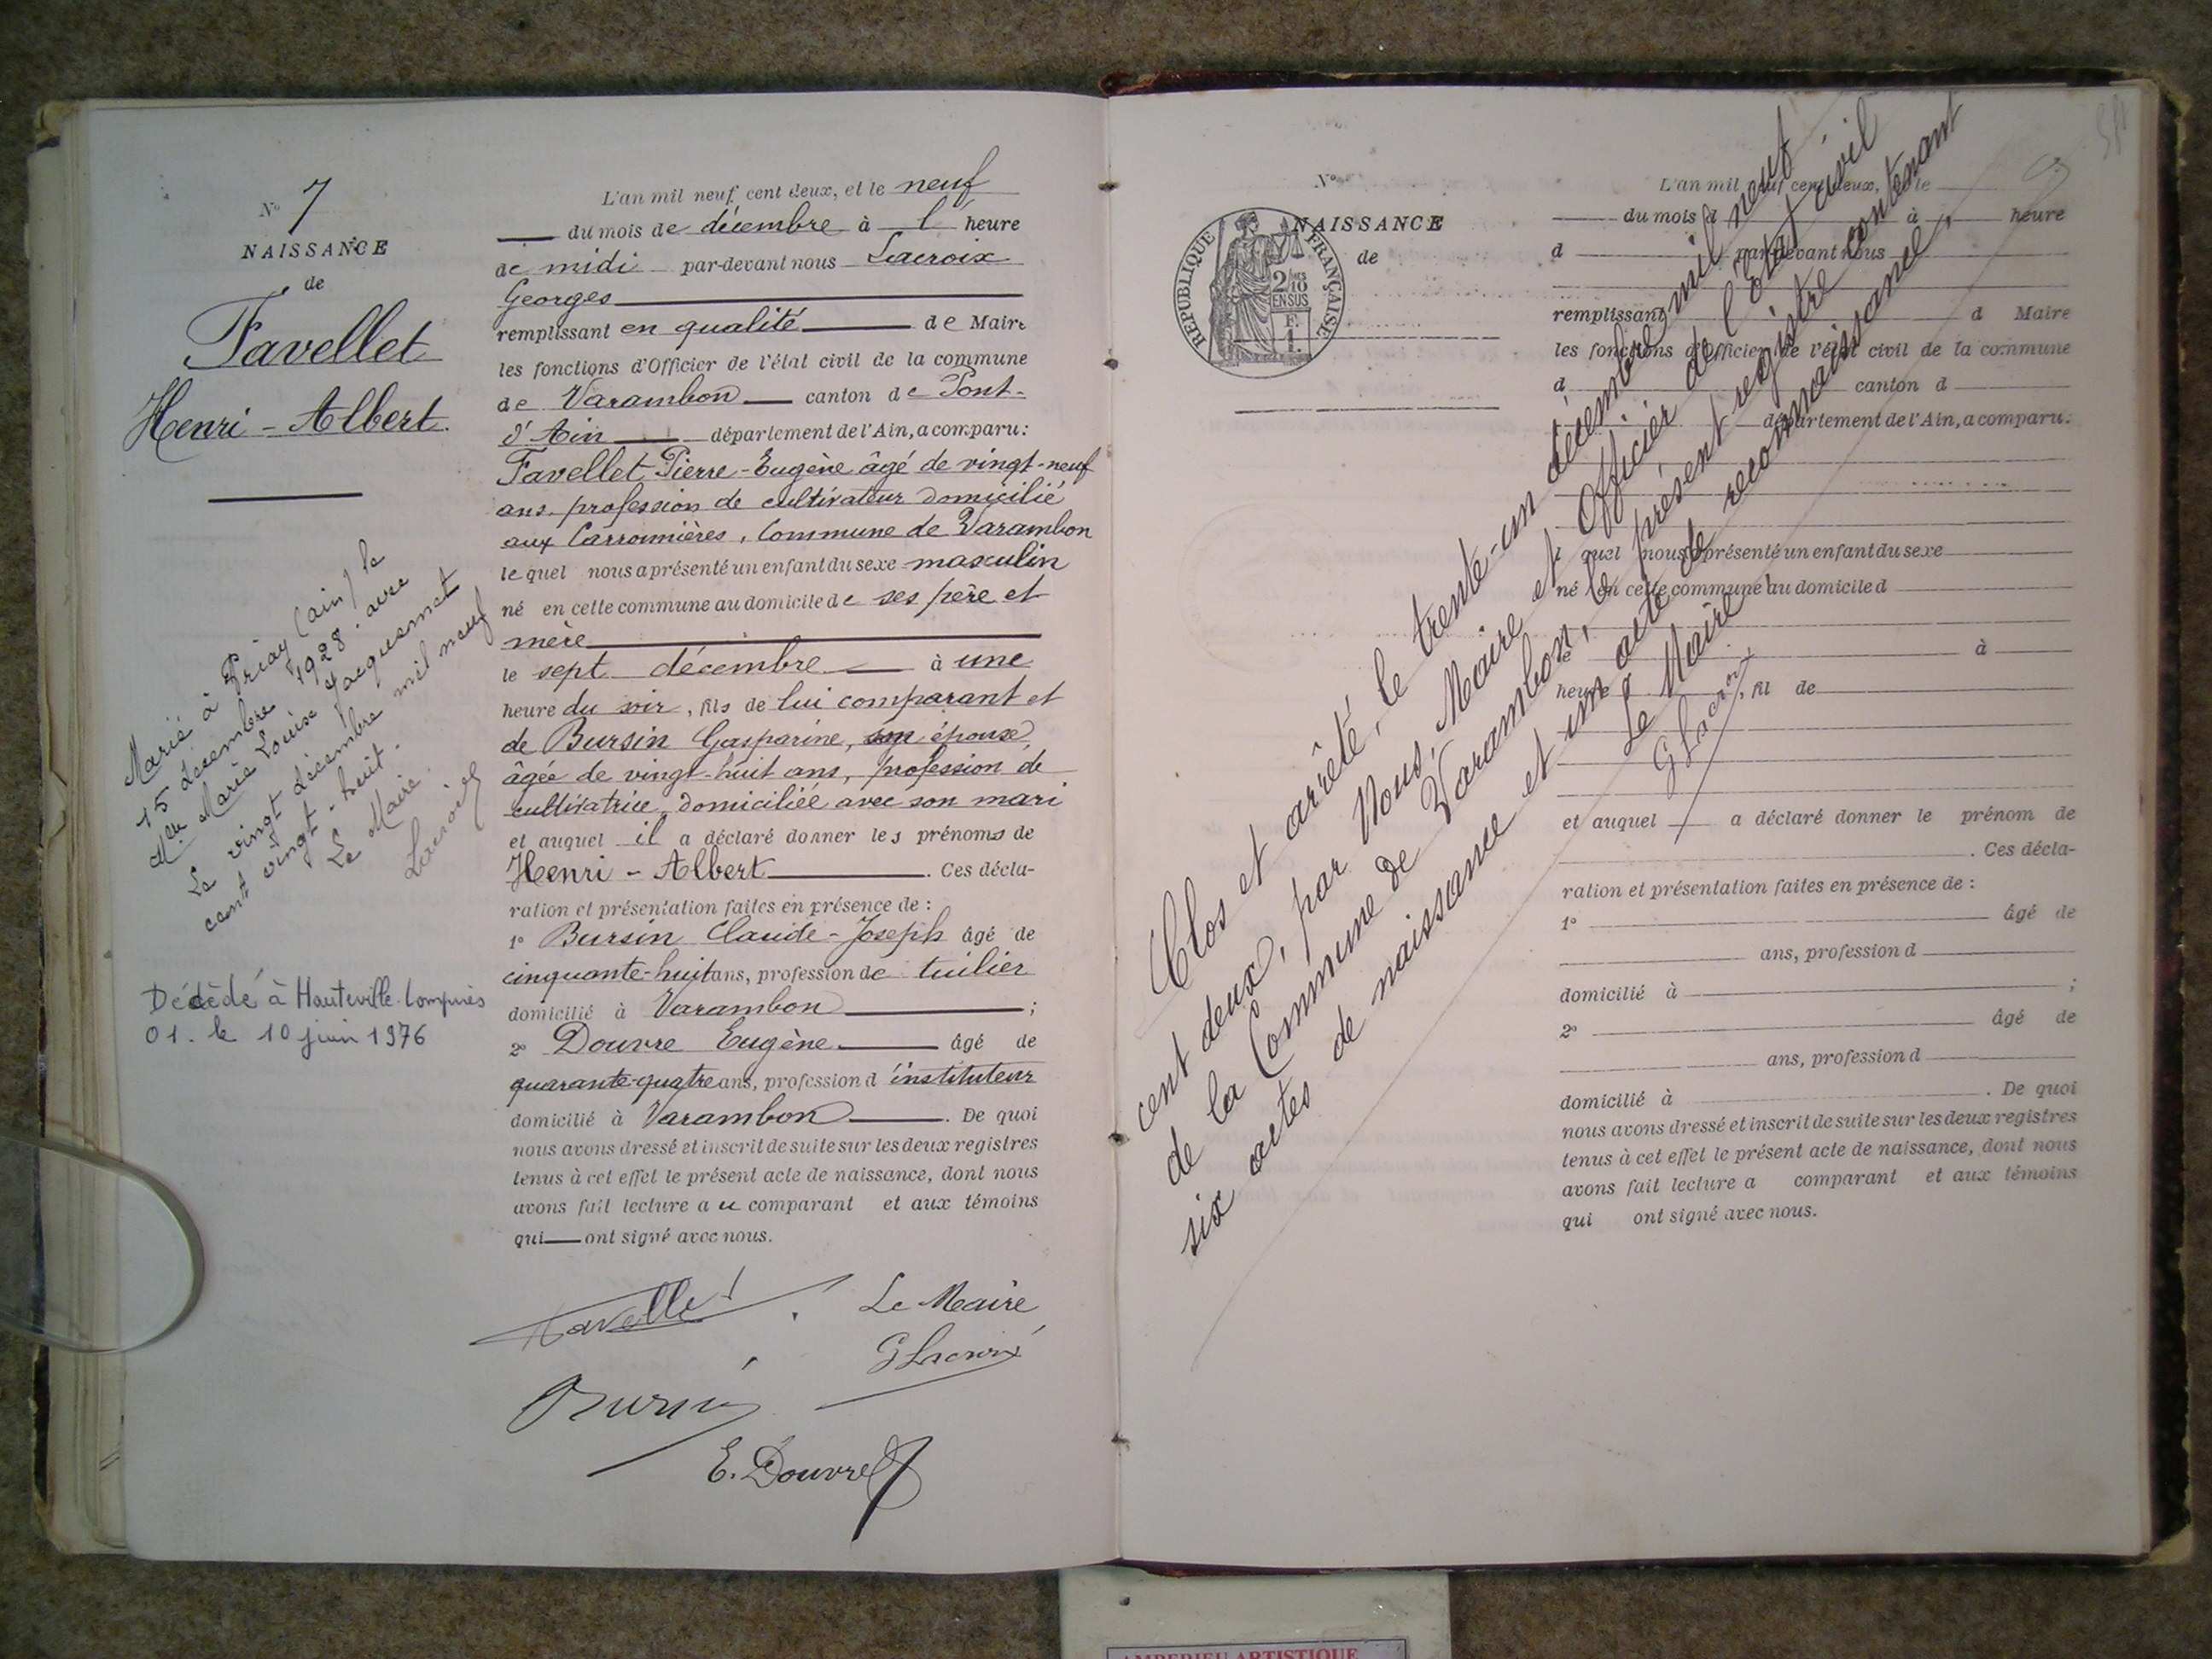 N° 7
NAISSANCE
de
Favellet
Henri - Albert.
Marié à Priay (ain) le
15 décembre 1928. avec
Melle Marie Louise Jacquemet
Le vingt décembre mil neuf
cent vingt-huit.
Le Maire.
Lacroix
Décédé à Hauteville-Lompnès
01. le 10 juin 1976
L'an mil neuf cent deux, et le neuf
du mois de décembre à l' heure
de midi par-devant nous Lacroix
Georges
remplissant en qualité de Maire
les fonctions d'Officier de l'état civil de la commune
de Varambon canton de Pont-
d'Ain département de l'Ain, a comparu:
Favellet Pierre-Eugène âgé de vingt-neuf
ans profession de cultivateur domicilié
aux Carronnières, Commune de Varambon
le quel nous a présenté un enfant du sexe masculin
né en cette commune au domicile de ses père et
mère
le sept décembre à une
heure du soir, fils de lui comparant et
de Bursin Gasparine, son épouse,
âgée de vingt-huit ans, profession de
cultivatrice, domiciliée avec son mari
et auquel il a déclaré donner les prénoms de
Henri - Albert. Ces décla-
ration et présentation faites en présence de :
1° Bursin Claude-Joseph âgé de
cinquante-huit ans, profession de tuilier
domicilié à Varambon ;
2° Douvre Eugène âgé de
quarante-quatre ans, profession d'instituteur
domicilié à Varambon. De quoi
nous avons dressé et inscrit de suite sur les deux registres
tenus à cet effet le présent acte de naissance, dont nous
avons fait lecture au comparant et aux témoins
qui ont signé avec nous.
Favellet
Le Maire
G Lacroix
Bursin
E. Douvre
N°
NAISSANCE
de
REPUBLIQUE FRANÇAISE
2/10
EN SUS
F.
1.
L'an mil neuf cent deux, le
du mois d à heure
d par-devant nous
remplissant d Maire
les fonctions d'Officier de l'état civil de la commune
d canton d
département de l'Ain, a comparu:
l quel nous a présenté un enfant du sexe
né en cette commune au domicile d
le à
heure , fil de
et auquel a déclaré donner le prénom de
. Ces décla-
ration et présentation faites en présence de :
1° âgé de
ans, profession d
domicilié à ;
2° âgé de
ans, profession d
domicilié à . De quoi
nous avons dressé et inscrit de suite sur les deux registres
tenus à cet effet le présent acte de naissance, dont nous
avons fait lecture a comparant et aux témoins
qui ont signé avec nous.
Clos et arrêté, le trente-un décembre mil neuf
cent deux, par Nous, Maire et Officier de l'Etat civil
de la Commune de Varambon, le présent registre contenant
six actes de naissance et un acte de reconnaissance.
Le Maire
G Lacroix
AMBERIEU ARTISTIQUE